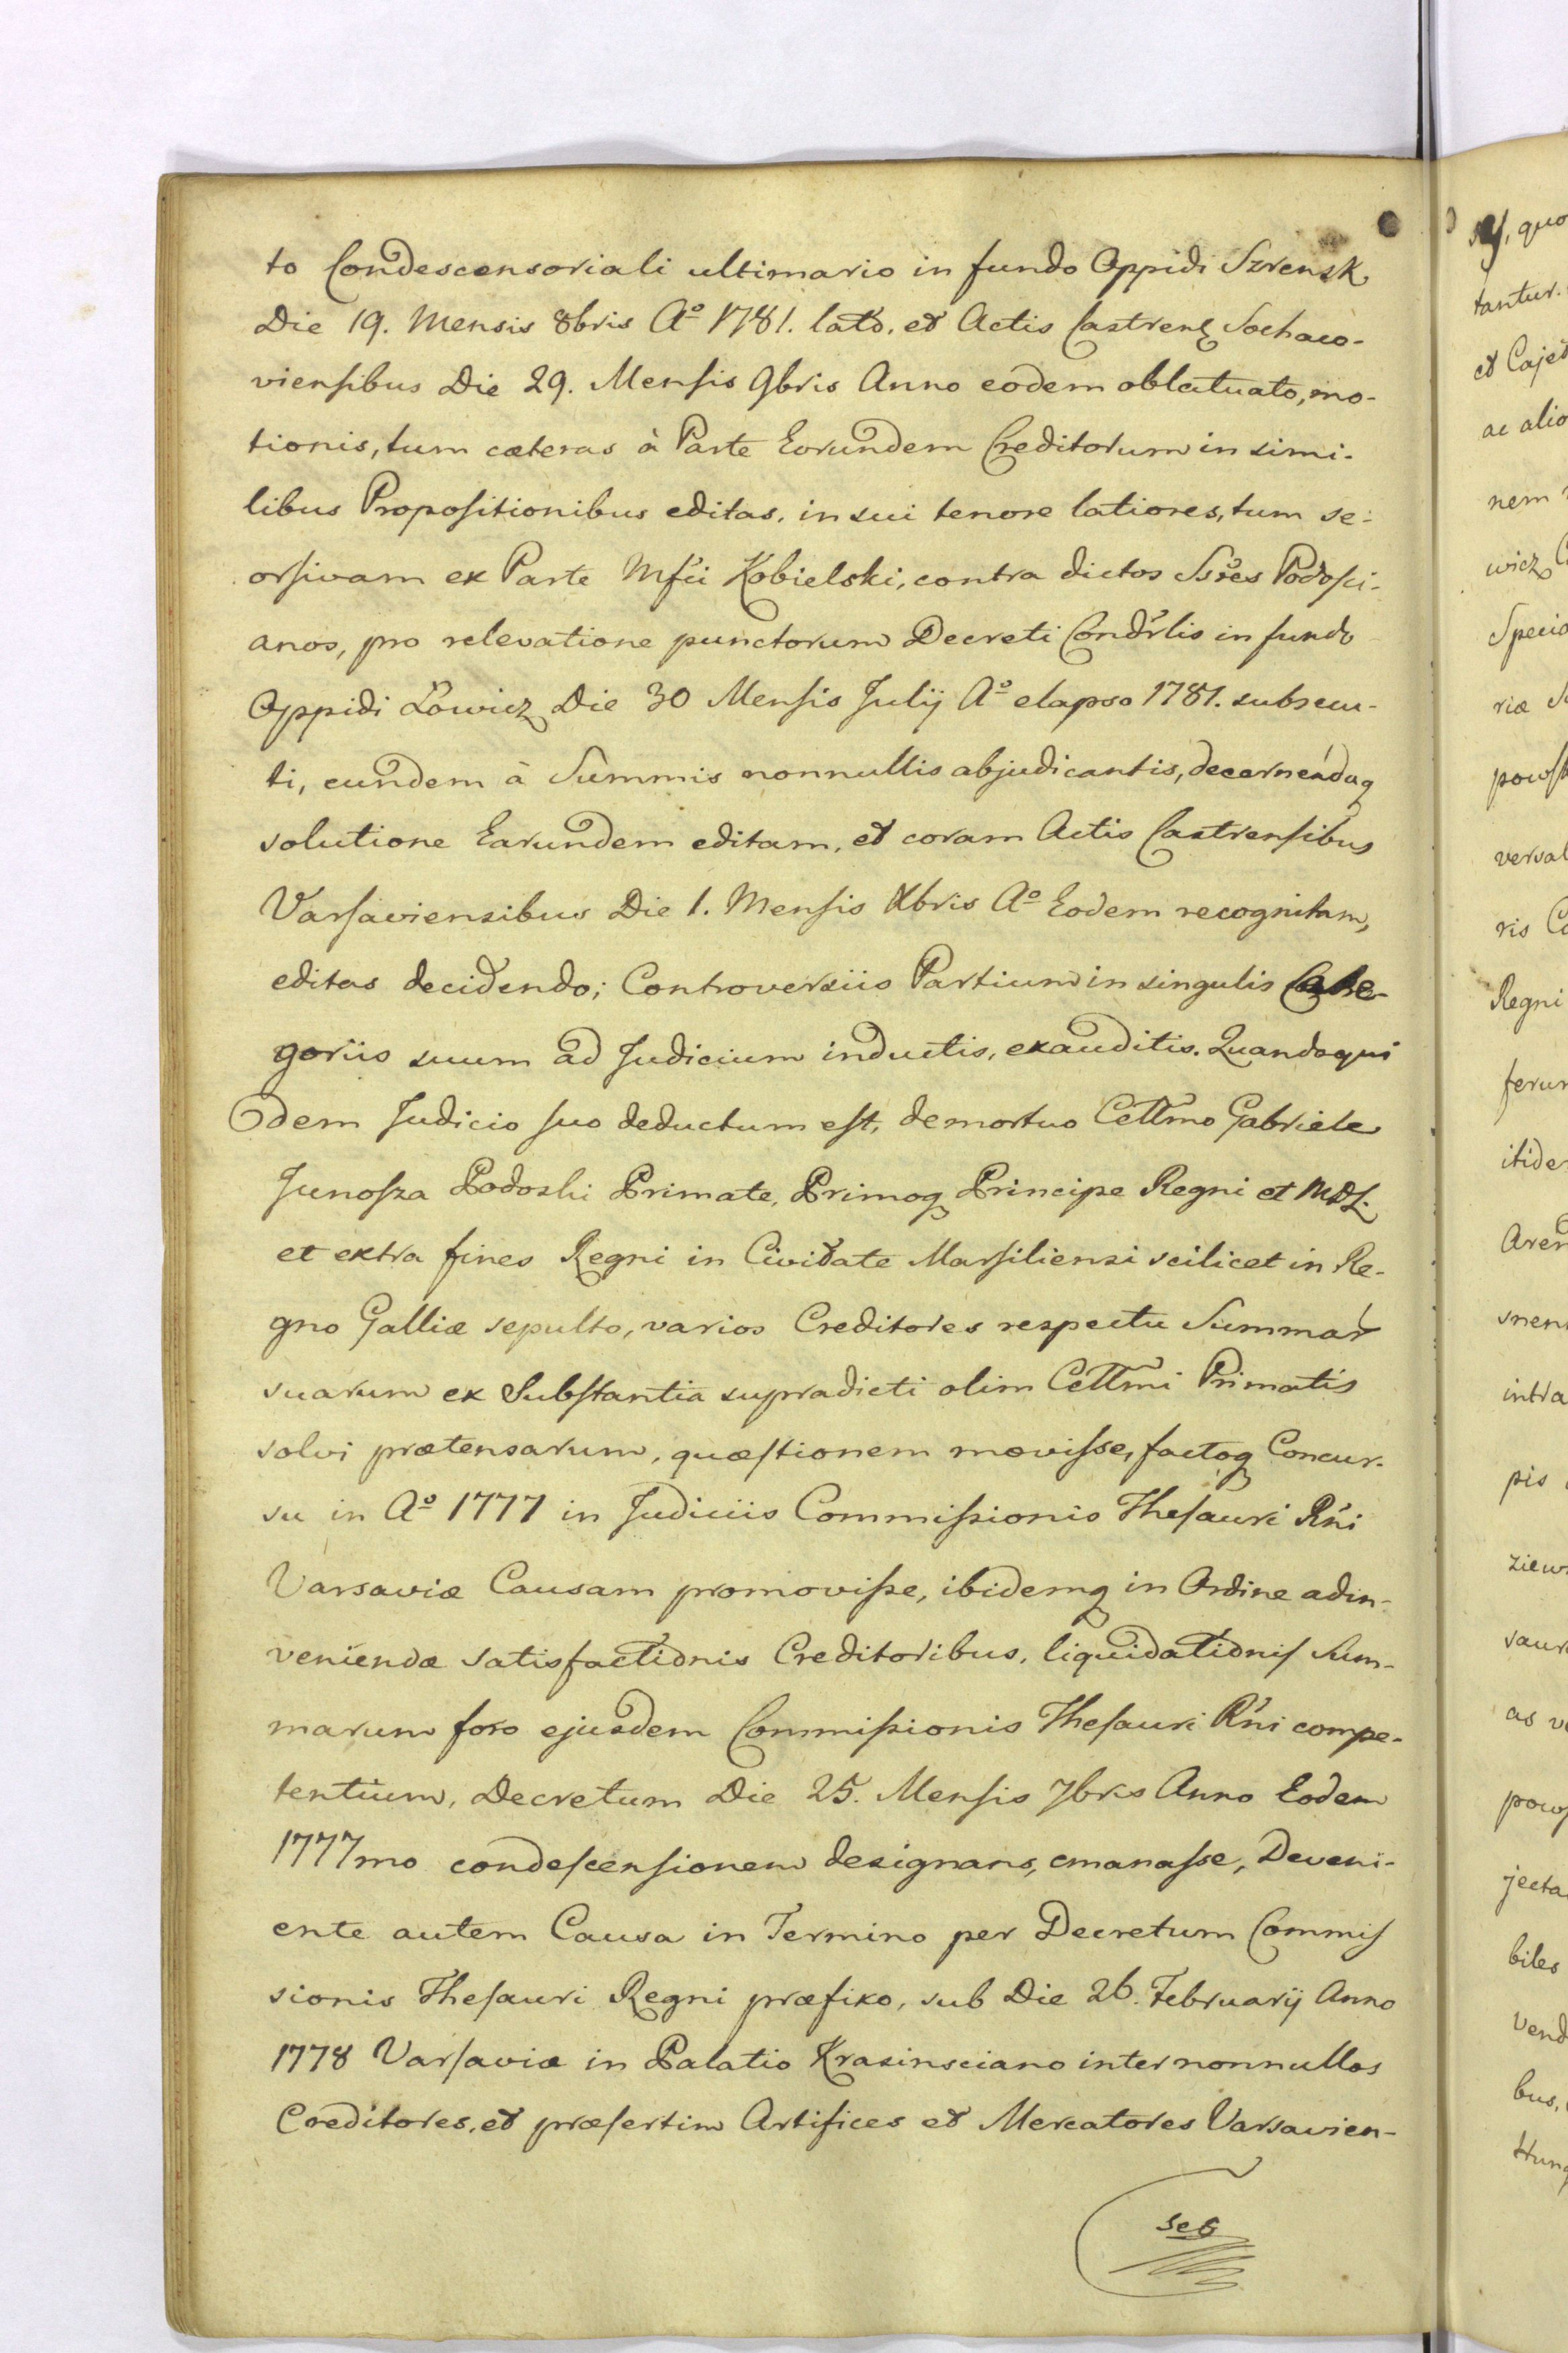 to Condescensoriali ultimario in fundo Oppidi Szrensk
Die 19. Mensis 8bris Aº 1781. lato, et Actis Castren Sochaco-
viensibus Die 29. Mensis 9bris Anno eodem oblatuato, mo-
tionis, tum cæteras à Parte Eorundem Creditorum in simi-
libus Propositionibus editas, in sui tenore latiores, tum se-
orsivam ex Parte Mfci Kobielski, contra dictos Ssres Podosci-
anos, pro relevatione punctorum Decreti Condrlis in fundo
Oppidi Łowicz Die 30 Mensis Julij Aº elapso 1781. subsecu-
ti, eundem à Summis nonnullis abjudicantis, decernendaq
solutione Earundem editam, et coram Actis Castrensibus
Varsaviensibus Die 1. Mensis Xbris Aº Eodem recognitam,
editas decidendo; Controversiis Partium in singulis Cathe-
goriis suum ad Judicium inductis, exauditis. Quandoqui
dem Judicio suo deductum est, demortuo Celsmo Gabriele
Junosza Podoski Primate, Primoq Principe Regni et MDL.
et extra fines Regni in Civitate Marsiliensi scilicet in Re-
gno Galliæ sepulto, varios Creditores respectu Summar
suarum ex Substantia supradicti olim Celsmi Primatis
solvi prætensarum, quæstionem movisse, factoq Concur-
su in Aº 1777 in Judiciis Commissionis Thesauri Rni
Varsaviæ Causam promovisse, ibidemq in Ordine adin-
veniendæ satisfactionis Creditoribus, liquidationis Sum-
marum foro ejusdem Commissionis Thesauri Rni compe-
tentium, Decretum Die 25. Mensis 7bris Anno Eodem
1777mo condescensionem designans, emanasse, Deveni-
ente autem Causa in Termino per Decretum Commis
sionis Thesauri Regni præfixo, sub Die 26. Februarij Anno
1778 Varsaviæ in Palatio Krasinsciano inter nonnullos
Creditores, et præsertim Artifices et Mercatores Varsavien-
ses
quo
tantur.
et Cajet
ac alio
nem
wicz
Specio
riæ
powsk
versal
ris
Regni
ferun
itide
Aren
snen
intra
pis
ziew
saur
as
pow
jecta
biles
vend
bus,
Hung